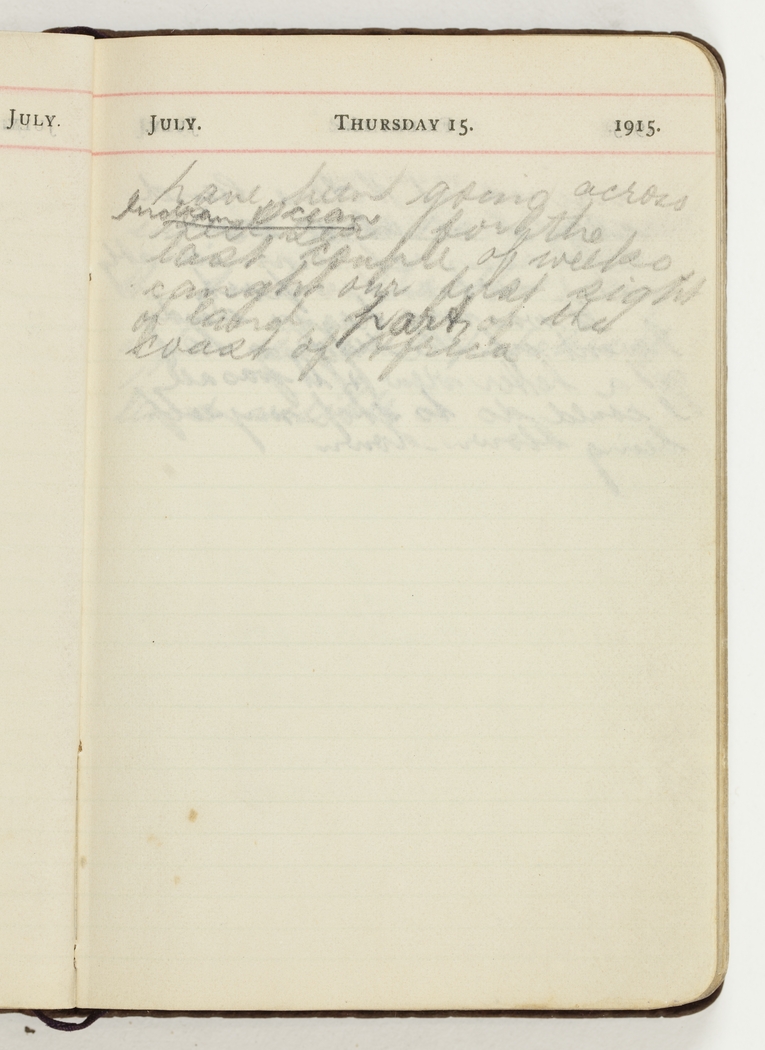 JULY.
JULY. THURSDAY 15. 1915.
have been going across
Indian Ocean
Red Sea for the
last couple of weeks
caught our first sight
of land part of the
coast of Africa